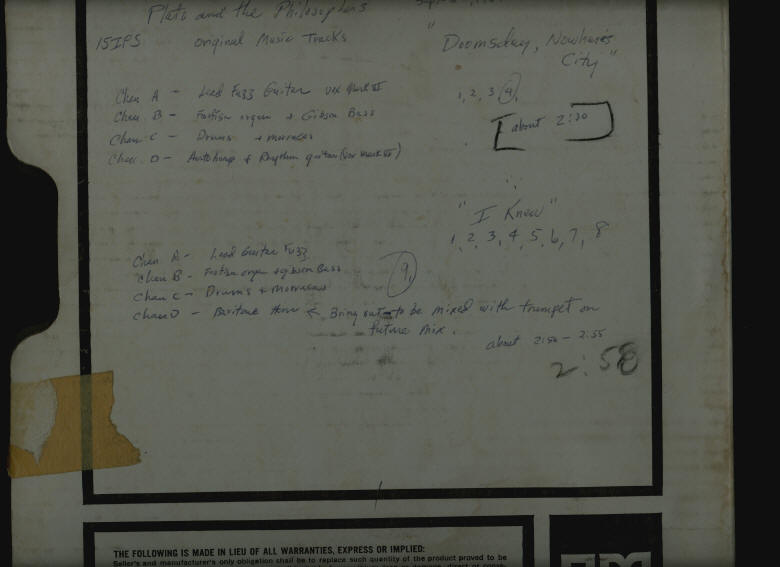 Plato and the Philosophers
15 IPS original Music Tracks
"Doomsday, Nowhere's
City"
Chan A - Lead Fuzz Guitar vox Mark VI
Chan B - Farfisa organ + Gibson Bass
Chan C - Drums + maracas
Chan D - Autoharp + Rhythm guitar (vox Mark VI)
1, 2, 3, 4,
about 2:30
"I Know"
1, 2, 3, 4, 5, 6, 7, 8
9,
Chan A - Lead Guitar Fuzz
Chan B - Farfisa organ + gibson Bass
Chan C - Drums + Marracas
Chan D - Baritone Horn ← Bring out to be mixed with trumpet on
future mix.
about 2:50 - 2:55
2:58
THE FOLLOWING IS MADE IN LIEU OF ALL WARRANTIES, EXPRESS OR IMPLIED:
Seller's and manufacturer's only obligation shall be to replace such quantity of the product proved to be